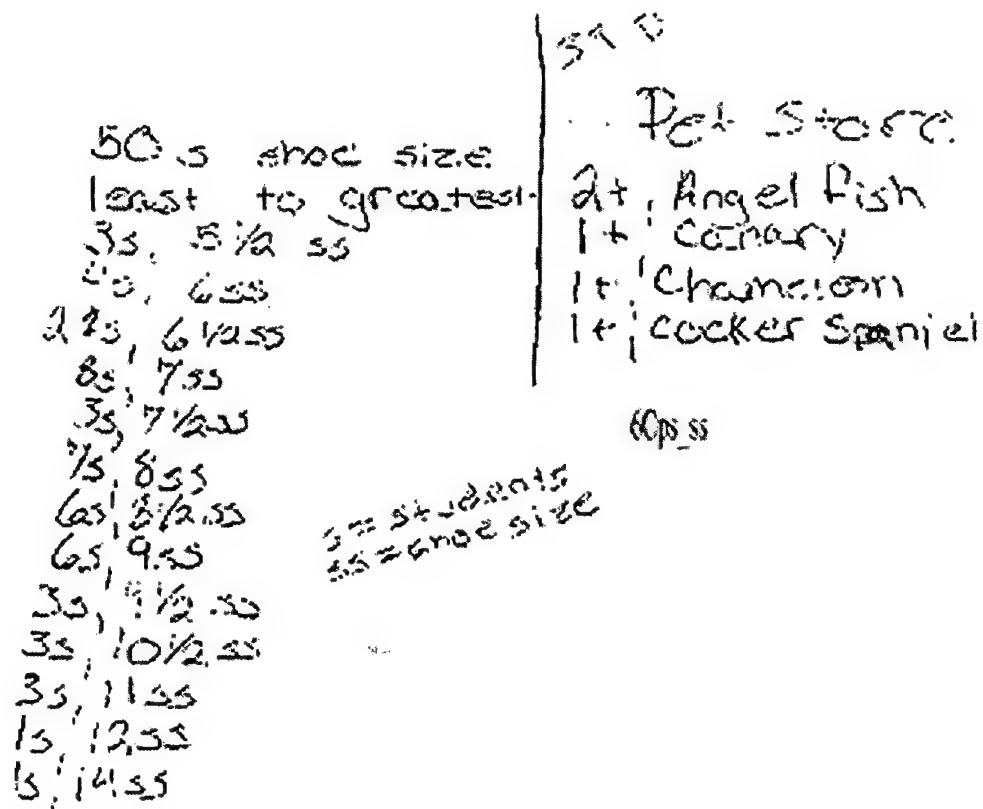 50 s shoe size
least to greatest
3s, 5 1/2 ss
6ss
2 6 1/2 ss
8s, 7ss
3s, 7 1/2 ss
7s, 8ss
6s, 8 1/2 ss
6s, 9 ss
3s, 9 1/2 ss
3s, 10 1/2 ss
3s, 11 ss
1s, 12 ss
1s, 14 ss
s = students
ss = shoe size
Pet Store
2t, Angel Fish
1t, Canary
1t, Chameleon
1t, Cocker Spaniel
60ps_ss